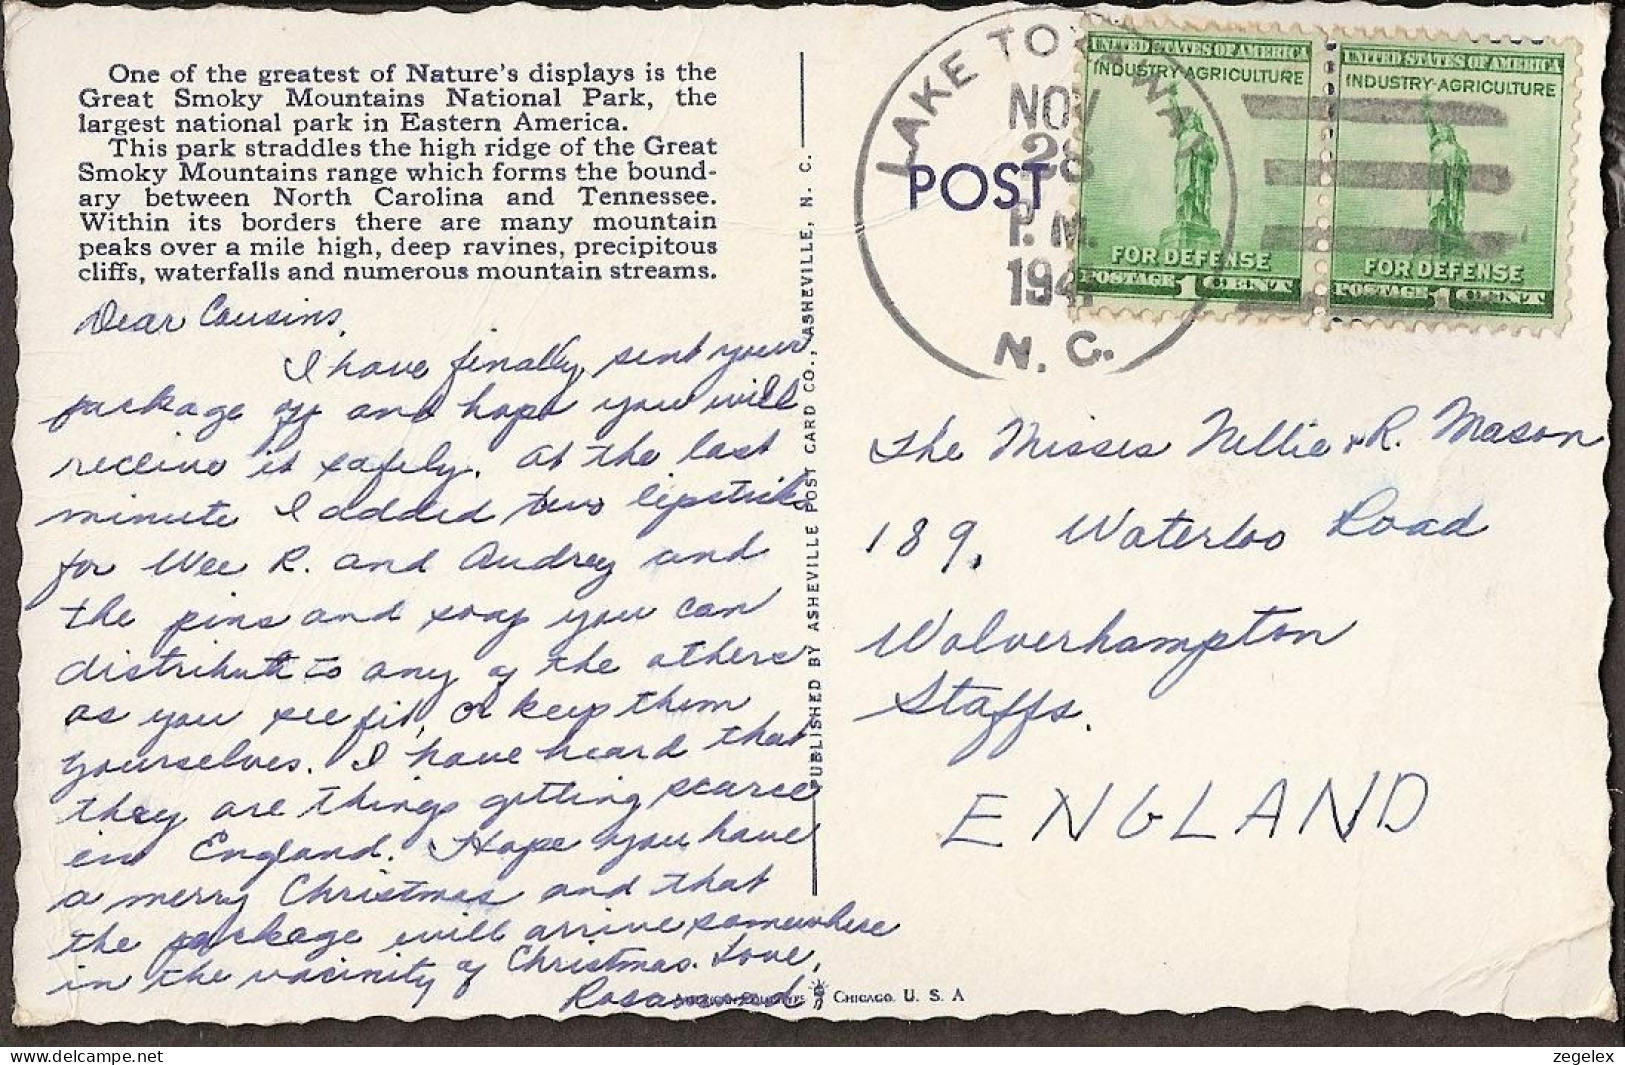 One of the greatest of Nature's displays is the
Great Smoky Mountains National Park, the
largest national park in Eastern America.
This park straddles the high ridge of the Great
Smoky Mountains range which forms the bound-
ary between North Carolina and Tennessee.
Within its borders there are many mountain
peaks over a mile high, deep ravines, precipitous
cliffs, waterfalls and numerous mountain streams.
Dear Cousins,
I have finally sent your
package off and hope you will
receive it safely. At the last
minute I added two lipsticks
for Wee R. and Audrey and
the pins and soap you can
distribute to any of the others
as you see fit, or keep them
yourselves. I have heard that
they are things getting scarce
in England. Hope you have
a merry Christmas and that
the package will arrive somewhere
in the vacinity of Christmas. Love,
Rosamond
PUBLISHED BY ASHEVILLE POST CARD CO., ASHEVILLE, N. C.
CHICAGO, U. S. A
POST
LAKE TOXAWAY
NOV
28
P. M.
1941
N. C.
UNITED STATES OF AMERICA
INDUSTRY·AGRICULTURE
FOR DEFENSE
POSTAGE 1 CENT
UNITED STATES OF AMERICA
INDUSTRY·AGRICULTURE
FOR DEFENSE
POSTAGE 1 CENT
The Misses Nellie & R. Mason
189, Waterloo Road
Wolverhampton
Staffs.
ENGLAND
www.delcampe.net
zegelex